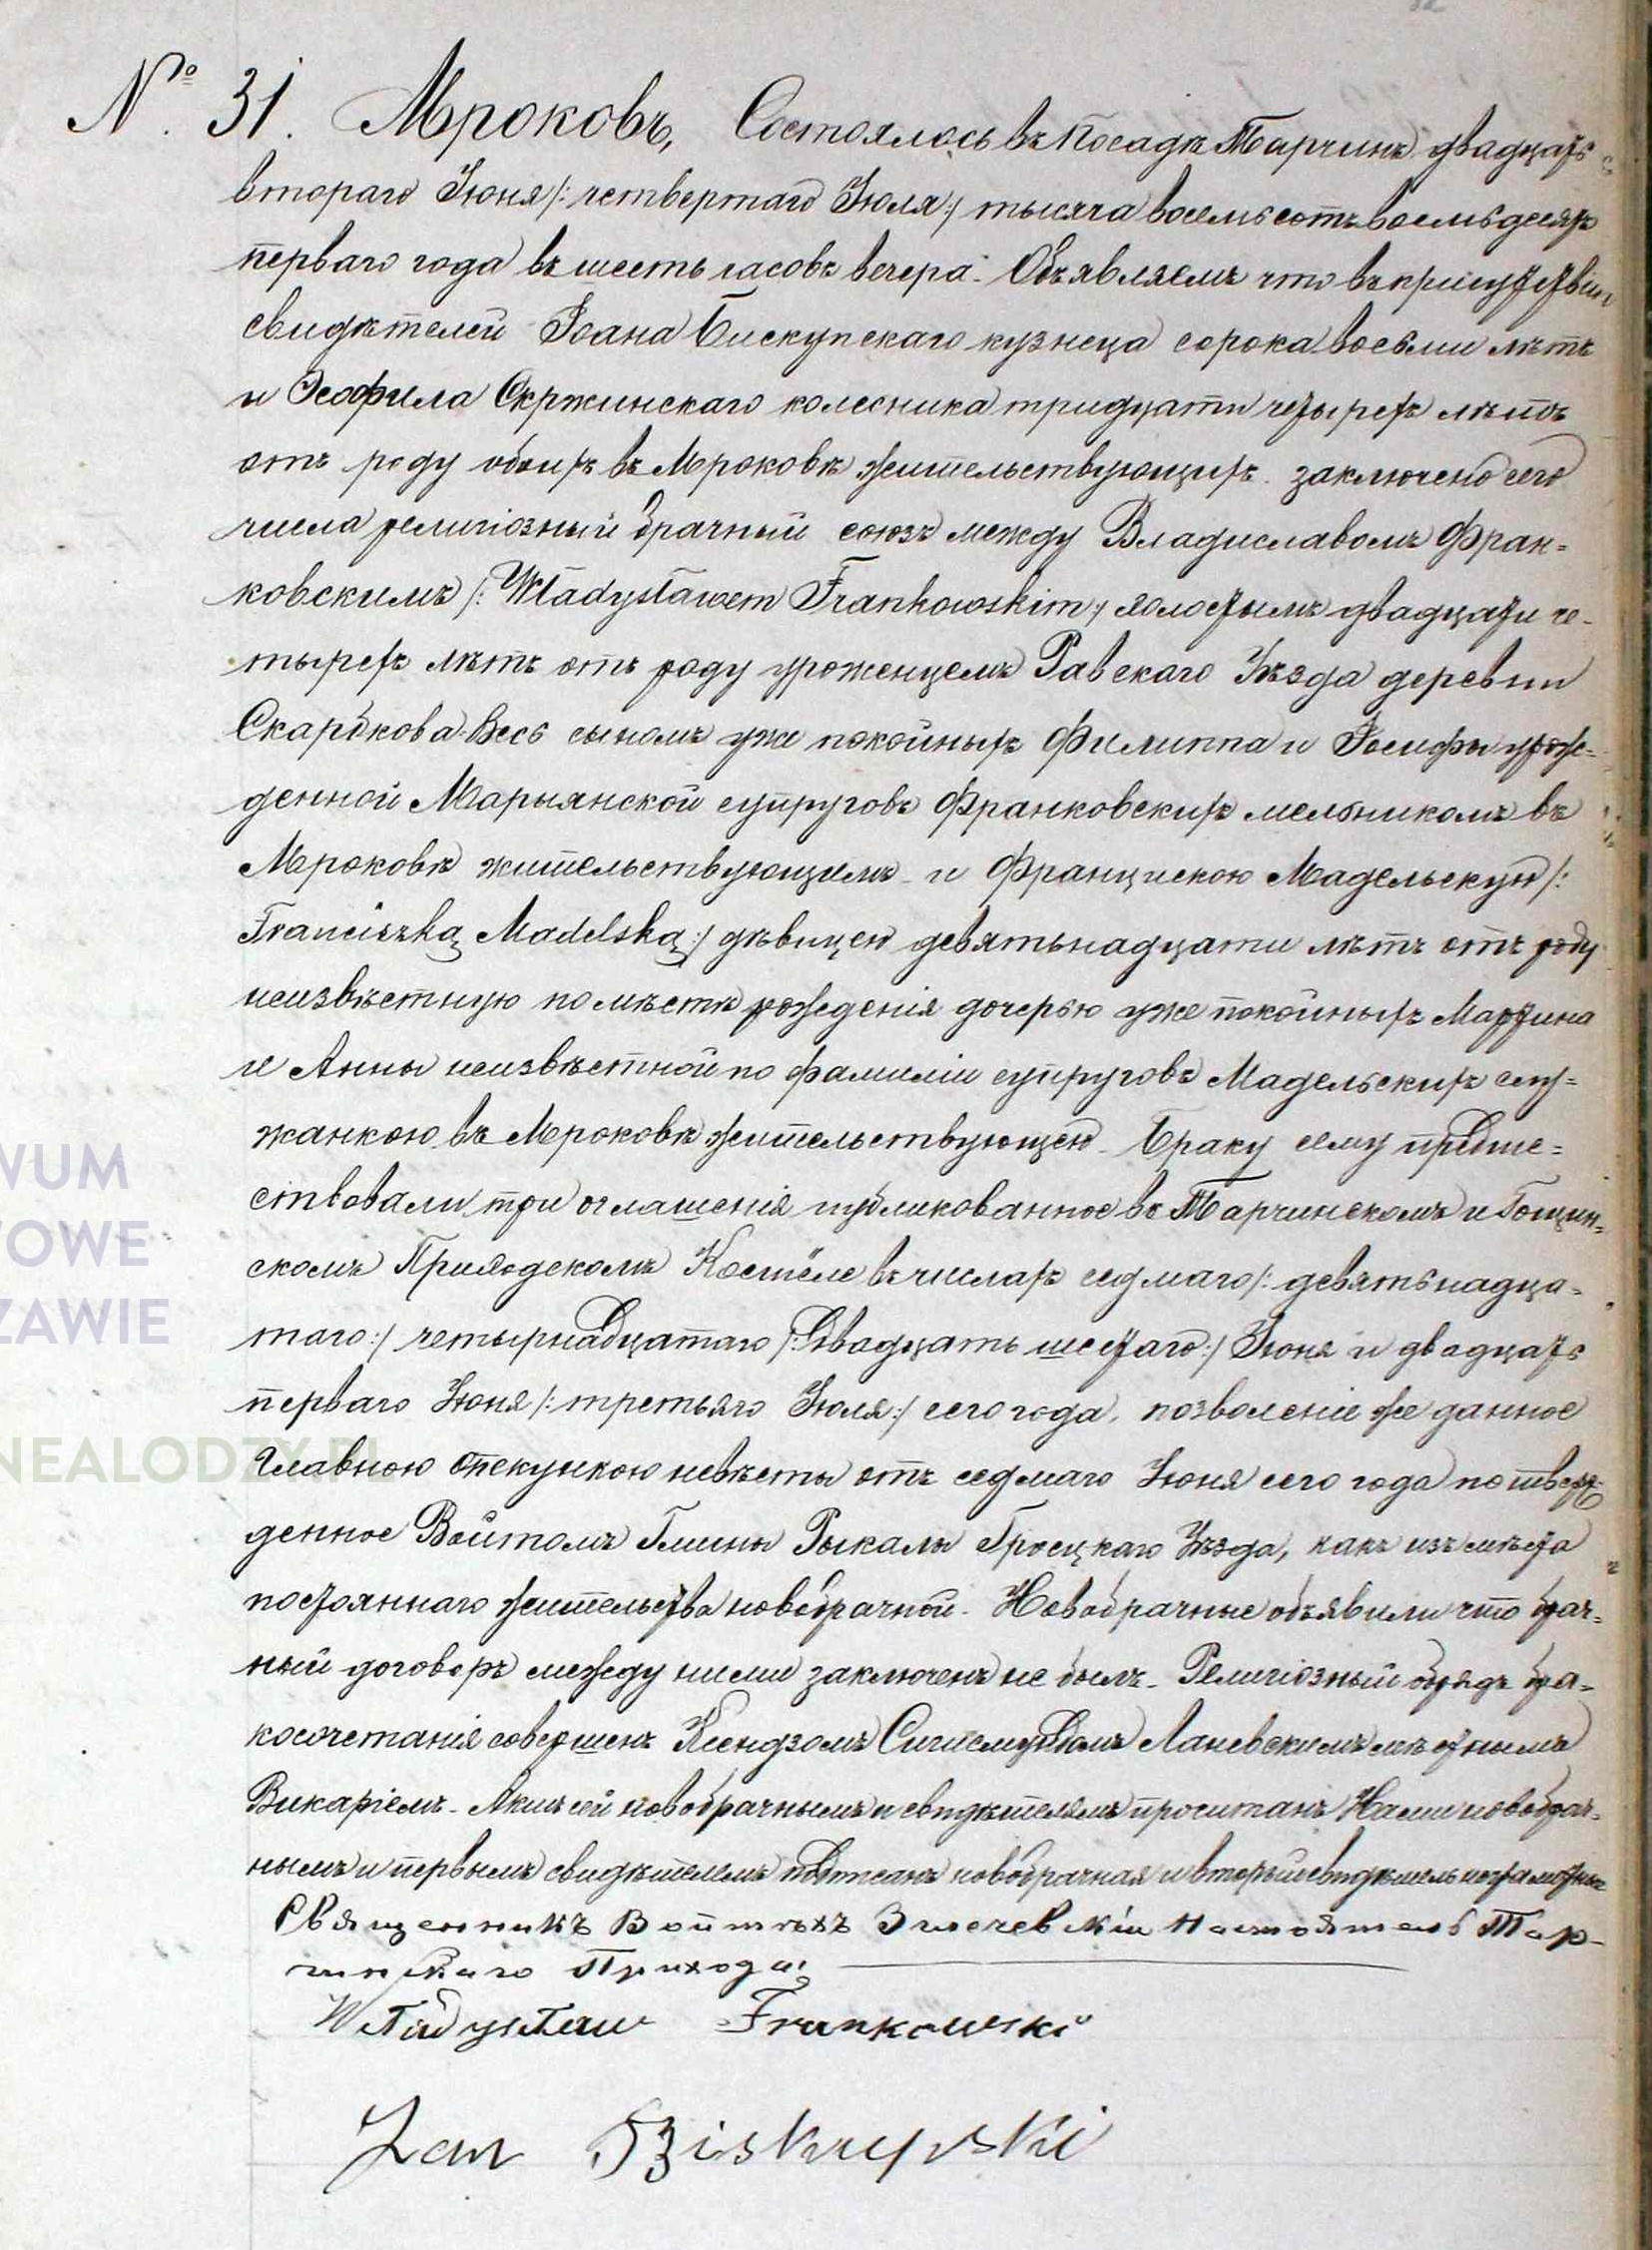 № 31. Мроковъ, Состоялось въ посадѣ Тарчинѣ двадцать
втораго Іюня /: четвертаго Іюля :/ тысяча восемьсотъ восемьдесятъ
перваго года въ шесть часовъ вечера. Объявляемъ что въ присутствіи
свидѣтелей Іоана Бискупскаго кузнеца сорока восьми лѣтъ
и Ѳеофила Скржинскаго колесника тридцати четырехъ лѣтъ
отъ роду обоихъ въ Мроковѣ жительствующихъ. заключено сего
числа религіозный брачный союзъ между Владиславомъ Фран=
ковскимъ /: Władysławem Frankowskim :/ холостымъ двадцати че-
тырехъ лѣтъ отъ роду уроженцемъ Равскаго Уѣзда деревни
Скарбкова-Весь сыномъ уже покойныхъ Филиппа и Іосифы урож=
денной Марыянской супруговъ Франковскихъ мельникомъ въ
Мроковѣ жительствующимъ - и Францискою Мадельскую /:
Franciszką Madelską :/ дѣвицею девятьнадцати лѣтъ отъ роду
неизвѣстную по мѣстѣ рожденія дочерью уже покойныхъ Мартина
и Анны неизвѣстной по фамиліи супруговъ Мадельскихъ слу=
жанкою въ Мроковѣ жительствующею. Браку сему предше=
ствовали три оглашенія публикованное въ Тарчинскомъ и Гощин=
скомъ Приходскомъ Костёле въ числахъ седмаго /: девятьнадца=
таго :/ четырнадцатаго /: двадцать шестаго :/ Іюня и двадцать
перваго Іюня /: третьяго Іюля :/ сего года, позволеніе же данное
Главною опекункою невѣсты отъ седмаго Іюня сего года потверж=
денное Войтомъ Гмины Рыкалы Гроецкаго Уѣзда, какъ изъ мѣста
постояннаго жительства новобрачной. Новобрачные объявили что брач=
ный договоръ между ними заключенъ не былъ. Религіозный обрядъ бра=
косочетанія совершенъ Ксендзомъ Сигисмундомъ мѣстнымъ
Викаріемъ. Актъ сей новобрачнымъ и свидѣтелямъ прочитанъ Нами новобрач=
нымъ и первымъ свидѣтелемъ подписанъ новобрачная и вторый свидѣтель неграмотны
Священникъ Войтѣхъ Настоятель Тар-
чинскаго Прихода:
Władysław Frankowski
Jan Biskupski